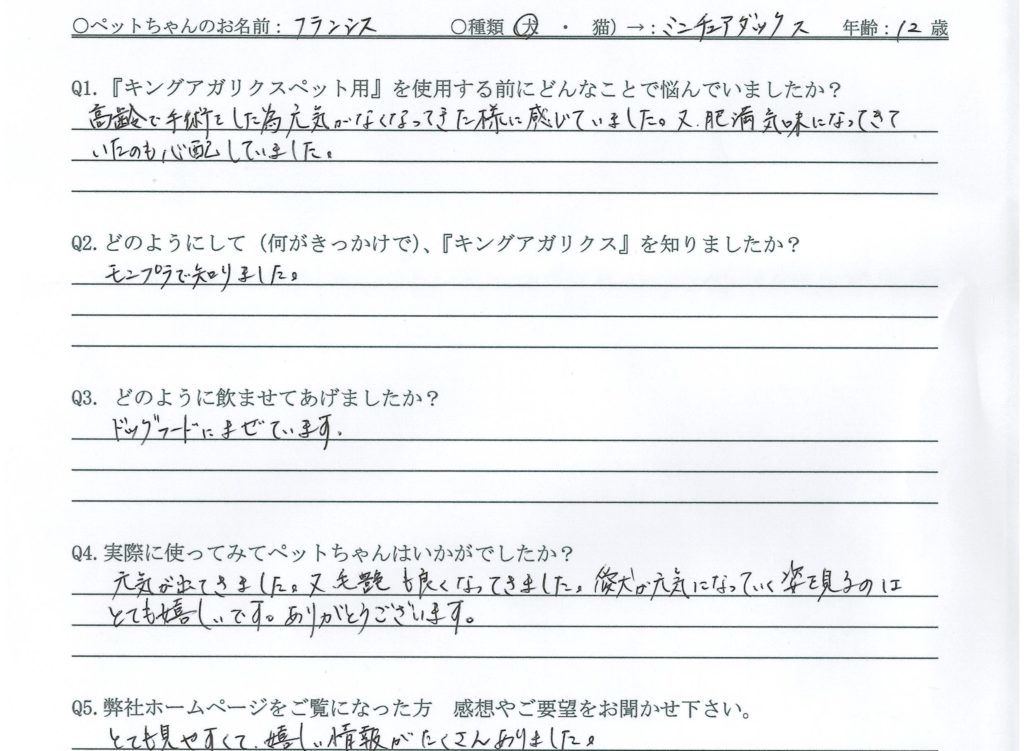 ○ペットちゃんのお名前：フランシス　○種類（犬　・　猫）→：ミニチュアダックス　年齢：12歳
Q1.『キングアガリクスペット用』を使用する前にどんなことで悩んでいましたか？
高齢で手術をした為元気がなくなってきた様に感じていました。又、肥満気味になってきて
いたのも心配していました。
Q2.どのようにして（何がきっかけで）、『キングアガリクス』を知りましたか？
モンプラで知りました。
Q3. どのように飲ませてあげましたか？
ドッグフードにまぜています。
Q4.実際に使ってみてペットちゃんはいかがでしたか？
元気が出てきました。又毛艶も良くなってきました。愛犬が元気になっていく姿を見るのは
とても嬉しいです。ありがとうございます。
Q5.弊社ホームページをご覧になった方　感想やご要望をお聞かせ下さい。
とても見やすくて、嬉しい情報がたくさんありました。